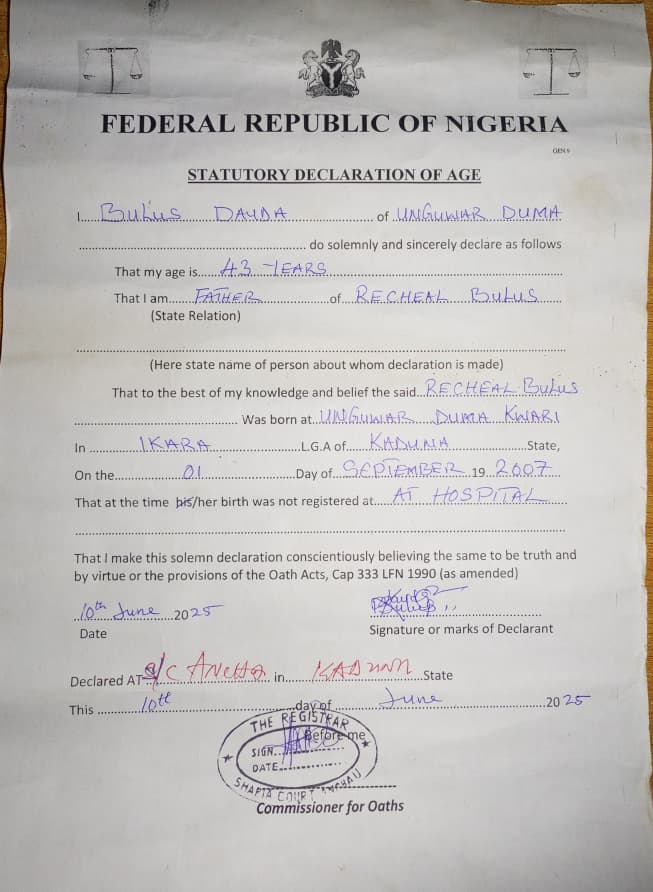 FEDERAL REPUBLIC OF NIGERIA
GEN 9
STATUTORY DECLARATION OF AGE
I BULUS DAUDA of UNGUWAR DUMA
do solemnly and sincerely declare as follows
That my age is 43 YEARS
That I am FATHER of RECHEAL BULUS
(State Relation)
(Here state name of person about whom declaration is made)
That to the best of my knowledge and belief the said RECHEAL BULUS
Was born at UNGUWAR DUMA KWARI
In IKARA L.G.A of KADUNA State,
On the 01 Day of SEPTEMBER 19 2007
That at the time his/her birth was not registered at AT HOSPITAL
That I make this solemn declaration conscientiously believing the same to be truth and
by virtue or the provisions of the Oath Acts, Cap 333 LFN 1990 (as amended)
10th June 2025
Date
Signature or marks of Declarant
Declared AT S/C in KADUNA State
This 10th day of June 2025
THE REGISTRAR
Before me
SIGN
DATE
COURT
Commissioner for Oaths